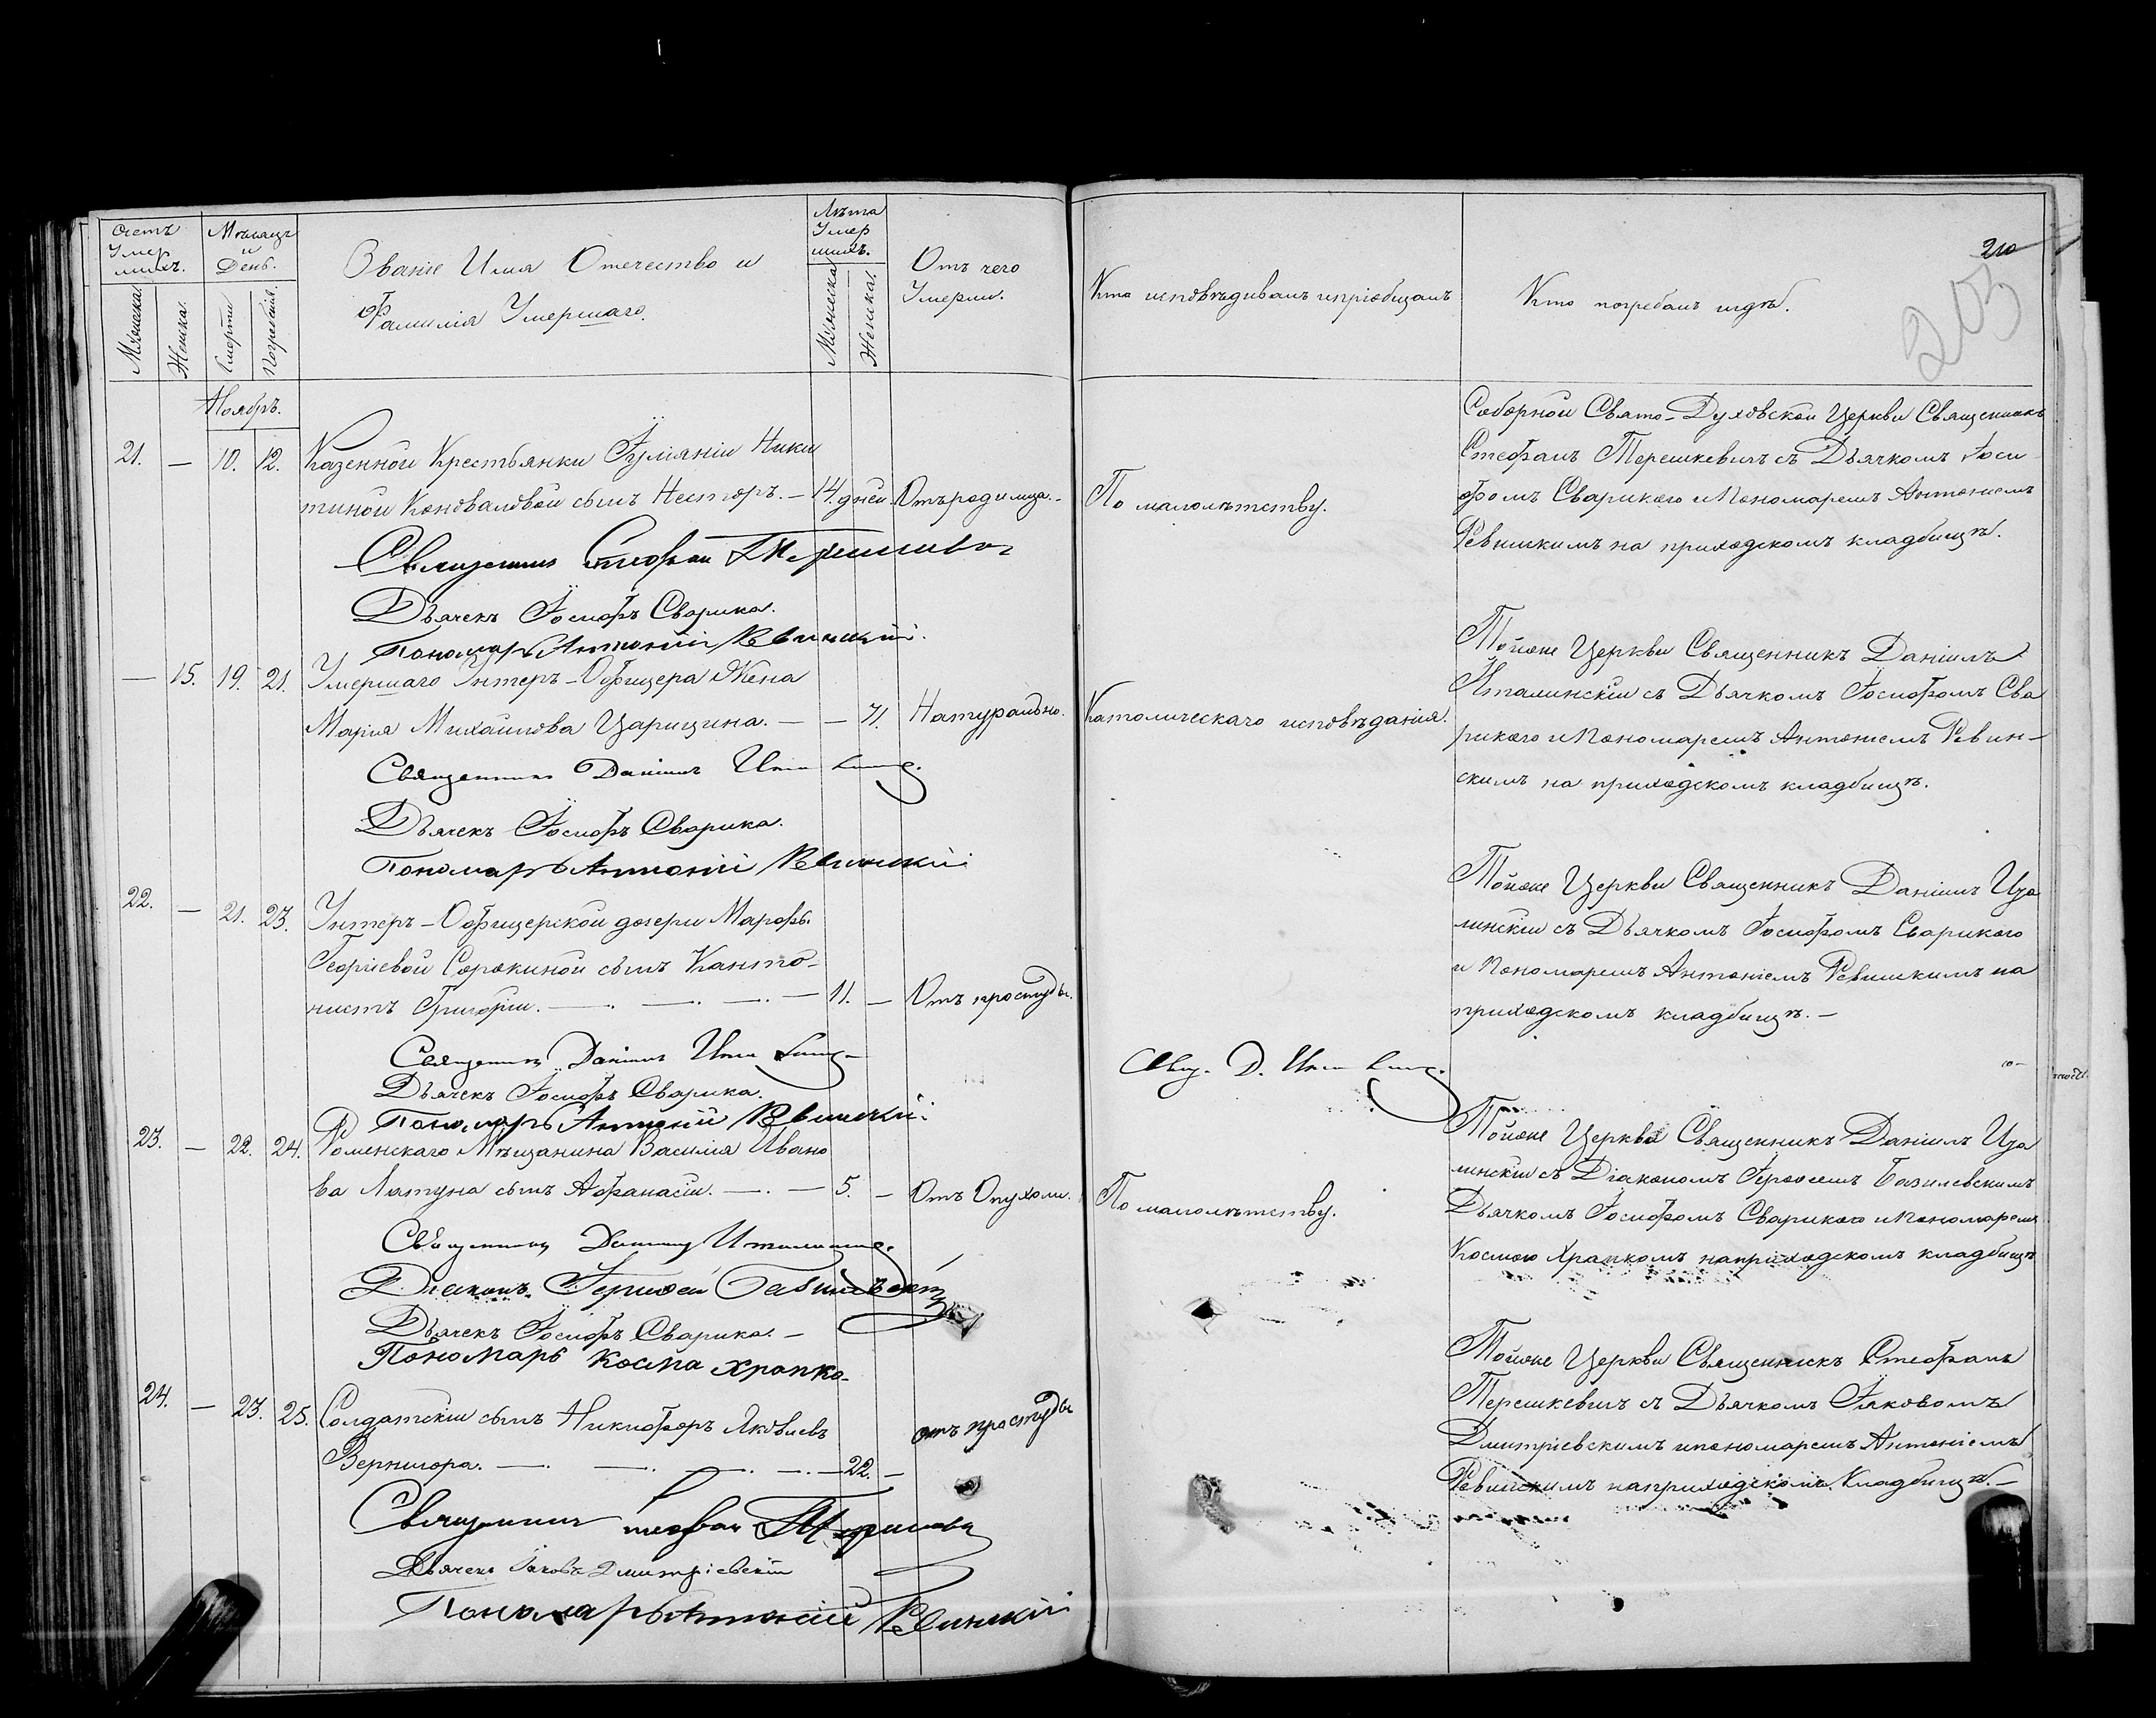 Счетъ
Умер
шихъ.
Мѣсяцъ
и
День.
Званіе Имя Отечество и
Фамилія Умершаго.
Лѣта
Умер
шихъ.
Отъ чего
Умерли.
Кто исповѣдывалъ и пріобщалъ
Кто погребалъ и гдѣ.
210
203
Мужеска.
Женска.
Смерти
Погребенія.
Мужеска
Женска.
Ноябрь.
21. — 10. 12. Казенной Крестьянки Іуліаніи Ники
тиной Коноваловой сынъ Несторъ. — 14. дней Отъ родимца. —
По малолѣтству.
Соборной Свято-Духовской Церкви Священникъ
Стефанъ Терешкевичъ съ Дьячкомъ Іоси
фомъ Сварикою и Пономаремъ Антоніемъ
Ревинскимъ на приходскомъ кладбищѣ.
Священникъ Стефан Терешкевич
Дьячекъ Іосифъ Сварика.
Пономарь Антоній Ревинскій.
— 15. 19. 21. Умершаго Унтеръ-Офицера Жена
Марія Михайлова Царицина. — — 71. Натурально.
Католическаго исповѣданія.
Тойже Церкви Священникъ Даніилъ
Италинскій съ Дьячкомъ Іосифомъ Сва
рикою и Пономаремъ Антоніемъ Ревин-
скимъ на приходскомъ кладбищѣ.
Священникъ Даніилъ
Дьячекъ Іосифъ Сварика.
Пономарь Антоній Ревинскій
22. — 21. 23. Унтеръ-Офицерской дочери Марфы
Георгіевой Сорокиной сынъ Канто-
нистъ Григорій. — 11. — Отъ простуды.
Тойже Церкви Священникъ Даніилъ Ита
линскій съ Дьячкомъ Іосифомъ Сварикою
и Пономаремъ Антоніемъ Ревинскимъ на
приходскомъ кладбищѣ. —
Священникъ Даніилъ
Дьячекъ Іосифъ Сварика.
Пономарь Антоній Ревинскій.
Свящ. Д.
23. — 22. 24. Роменскаго Мѣщанина Василія Ивано
ва Латуна сынъ Афанасій. — 5. — Отъ Опухоли.
По малолѣтству.
Тойже Церкви Священникъ Даніилъ Ита
линскій съ Діакономъ Іерофеемъ Базилевскимъ
Дьячкомъ Іосифомъ Сварикою и Пономаремъ
Космою Храпкомъ на приходскомъ кладбищѣ
Священникъ Даніилъ Италинскій
Діаконъ Іерофей Базилевскій
Дьячекъ Іосифъ Сварика. —
Пономарь Косма Храпко.
24. — 23. 25. Солдатскій сынъ Никифоръ Яковлевъ
Вернигора. — 22. —
отъ простуды
Тойже Церкви Священникъ Стефанъ
Терешкевичъ съ Дьячкомъ Іаковомъ
Дмитріевскимъ и пономаремъ Антоніемъ
Ревинскимъ на приходскомъ Кладбищѣ. —
Священникъ Стефан Терешкевич
Дьячекъ Іаковъ Дмитріевскій
Пономарь Антоній Ревинскій